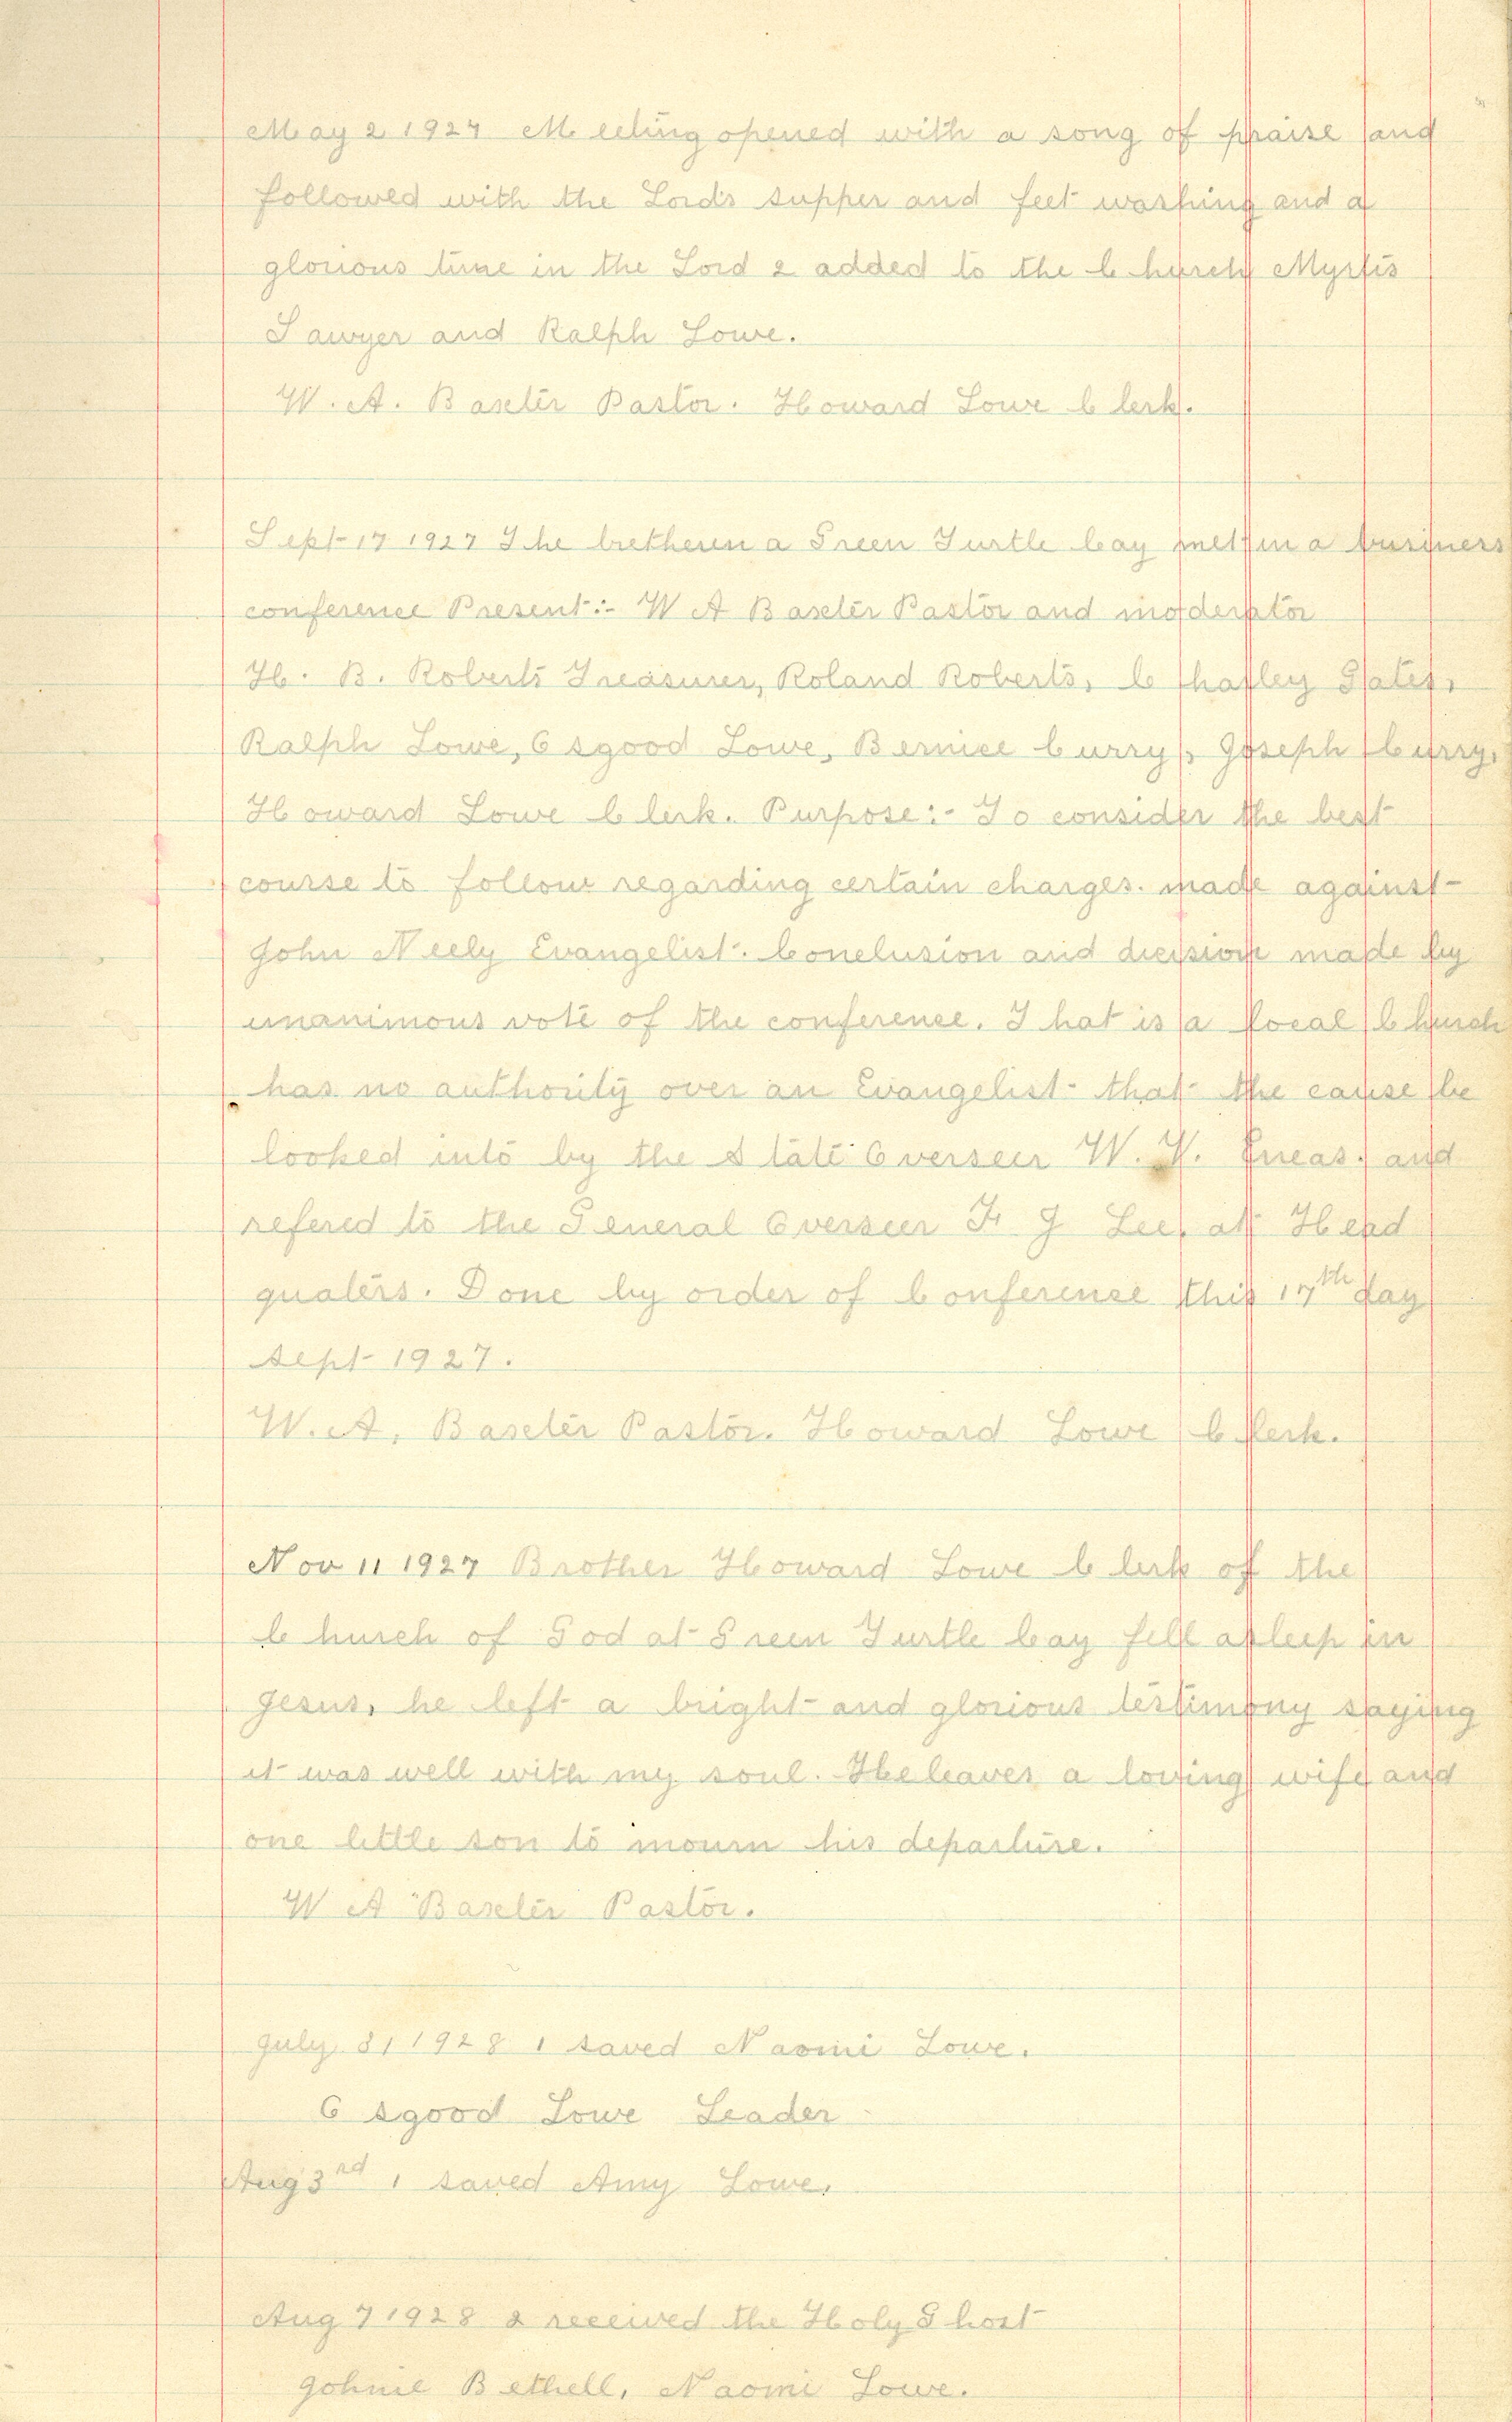 May 2 1927 Meeting opened with a song of praise and
followed with the Lords supper and feet washing and a
glorious time in the Lord 2 added to the Church Myrtis
Sawyer and Ralph Lowe.
W. A. Baxter Pastor. Howard Lowe Clerk.
Sept 17 1927 The bretheren a Green Turtle Cay met in a business
conference Present:- W A Baxter Pastor and moderator
H. B. Roberts Treasurer, Roland Roberts,
Ralph Lowe, Osgood Lowe, Bernice Curry, Joseph Curry,
Howard Lowe Clerk. Purpose:- To consider the best
course to follow regarding certain charges. made against
John Neely Evangelist. Conclusion and made by
unanimous vote of the conference. That is a local Church
has no authority over an Evangelist- that the cause be
looked into by the State Overseer W. V. Eneas, and
refered to the General Overseer F J Lee, at Head
quaters. Done by order of Conference this 17th day
Sept 1927.
W. A. Baxter Pastor. Howard Lowe Clerk.
Nov 11 1927 Brother Howard Lowe Clerk of the
Church of God at Green Turtle Cay fell asleep in
Jesus, he left a bright and glorious testimony saying
it was well with my soul. He leaves a loving wife and
one little son to mourn his departure.
W A Baxter Pastor.
July 31 1928 1 saved Naomi Lowe.
Osgood Lowe Leader
Aug 3rd 1 saved Amy Lowe.
Aug 7 1928 2 received the Holy Ghost
Johnie Bethell, Naomi Lowe.